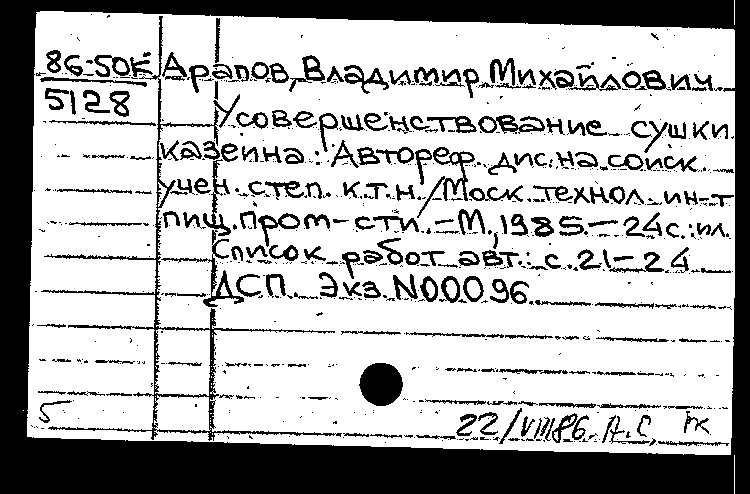 86-50К Арапов, Владимир Михайлович
5128
Усовершенствование сушки
казеина: Автореф. дис. на соиск.
учен. степ. к.т.н. / Моск. технол. ин-т
пищ. пром-сти. - М., 1985. - 24с.: ил.
Список работ авт.: с. 21-24
ДСП. Экз. N00096
5
22/VIII86. А.С.